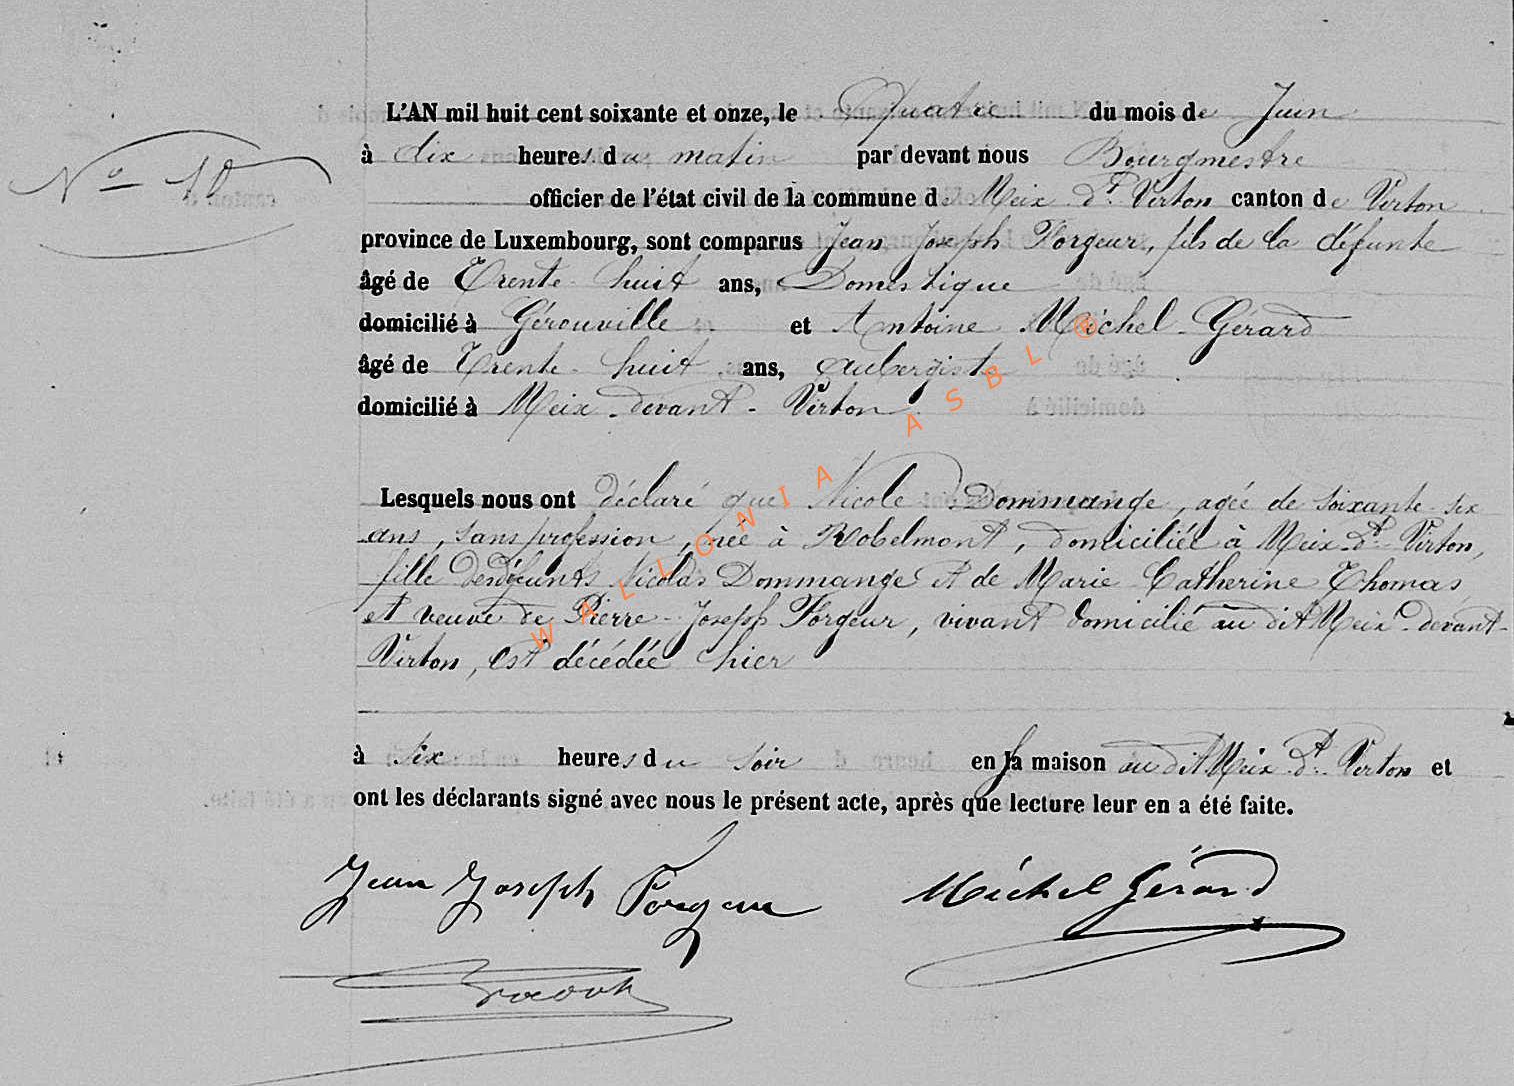 L'AN mil huit cent soixante et onze, le Quatre du mois de Juin
N° 10
à dix heures du matin par devant nous Bourgmestre
officier de l'état civil de la commune de Meix-dt-Virton canton de Virton
province de Luxembourg, sont comparus Jean Joseph Forgeur, fils de la défunte
âgé de Trente-huit ans, Domestique
domicilié à Gérouville et Antoine Michel Gérard
âgé de Trente-huit ans, aubergiste
domicilié à Meix-devant-Virton.
Lesquels nous ont déclaré que Nicole Dommange, agée de soixante-six
ans, sans profession, née à Robelmont, domiciliée à Meix-dt-Virton,
fille des défunts Nicolas Dommange et de Marie-Catherine Thomas,
et veuve de Pierre-Joseph Forgeur, vivant domicilié au dit Meix-devant-
Virton, est décédée hier
à six heures du soir en la maison au dit Meix-dt-Virton et
ont les déclarants signé avec nous le présent acte, après que lecture leur en a été faite.
Jean Joseph Forgeur Michel Gérard
WALLONIA ASBL ®